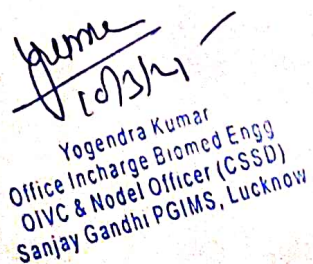 10/3/21
Yogendra Kumar
Office Incharge Biomed Engg
OIVC & Nodel Officer (CSSD)
Sanjay Gandhi PGIMS, Lucknow